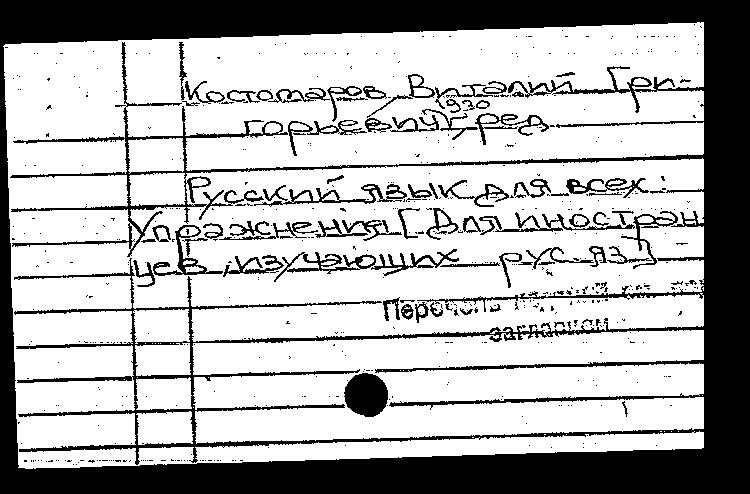 Костомаров, Виталий Гри-
1930
горьевич, ред.
Русский язык для всех:
Упражнения [Для иностран
цев, изучающих рус яз]
Перечень изданий см. под
заглавием